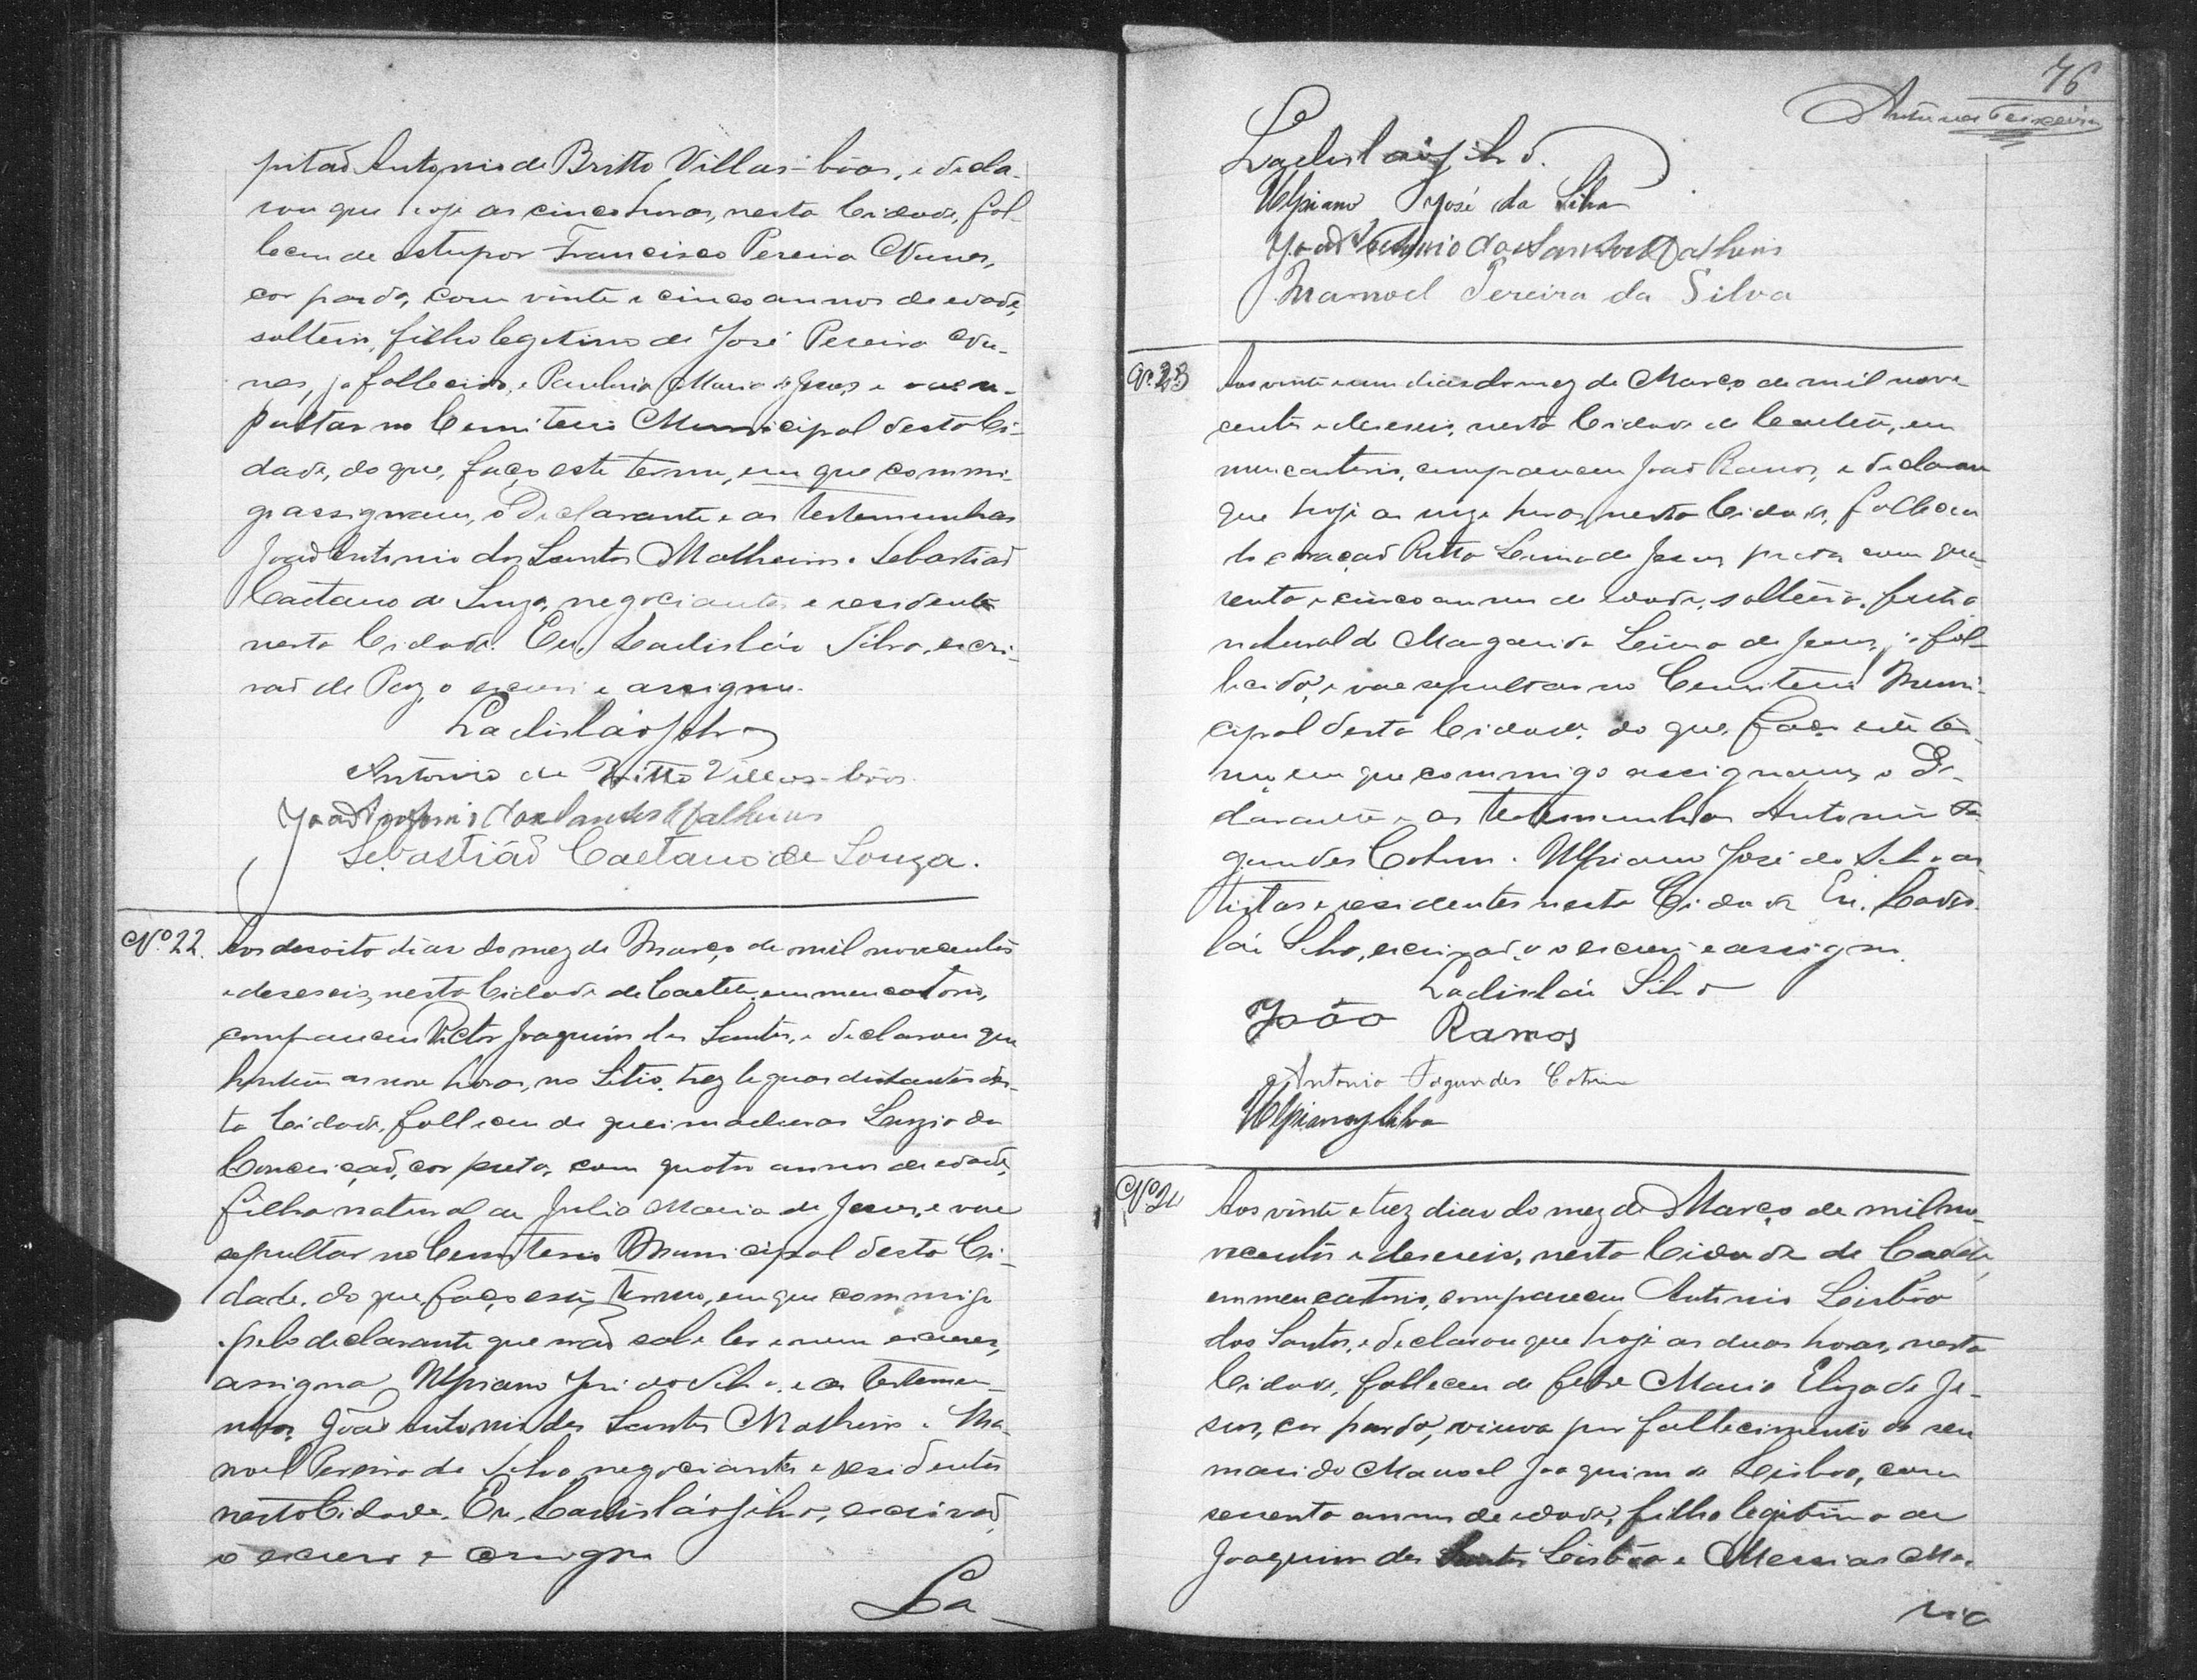 pitaõ Antonio de Britto Villas-bôas, e decla-
rou que hoje as cinco horas, nesta Cidade, fal-
leceu de estupor Francisco Pereira Nunes,
cor parda, com vinte e cinco annos de edade,
solteiro, filho legitimo de José Pereira Nu-
nes, ja fallecido, e Paulina Maria de Jesus e vae se-
pultar no Cemiterio Municipal desta Ci-
dade, do que, faço este termo, em que commi-
go assignam, o Declarante e as testemunhas
João Antonio dos Santos Matheus e Sebastiaõ
Caetano de Souza, negociantes e residentes
nesta Cidade. Eu, Ladisláo Silva, escri-
vaõ de Paz, o escrevi e assigno.
Ladisláo Silva
Antonio de Britto Villas-bôas
João Antonio dos Santos Matheus
Sebastiãõ Caetano de Souza.
Nº 22. Aos desoito dias do mez de Março de mil novecentos
e deseseis, nesta Cidade de Caeteté, em meu cartorio,
compareceu Victor Joaquim dos Santos, e declarou que
hontem as nove horas, no Sitio, trez leguas distantes des-
ta Cidade, falleceu de queimaduras Luzia da
Conceiçaõ, cor preta, com quatro annos de edade,
filha natural de Julia Maria de Jesus, e vae
sepultar no Cemiterio Municipal desta Ci-
dade. do que faço este termo, em que commigo
pelo declarante que naõ sabe ler e nem escrever,
assigna Ulpiano José da Silva, e as testemu-
nhas João Antonio dos Santos Matheus e Ma-
noel Pereira da Silva negociantes e residentes
nesta Cidade. Eu, Ladisláo Silva, escrivaõ,
o escrevi e assigno
La-
76
Antunes Teixeira
Ladisláo Silva.
Ulpiano José da Silva
João Antonio dos Santos Matheus
Manoel Pereira da Silva
Nº 23 Aos vinte e um dias do mez de Março de mil nove-
centos e deseseis, nesta Cidade de Caeteté, em
meu cartorio, compareceu João Ramos, e declarou
que hoje as onze horas, nesta Cidade, falleceu
do coraçaõ Ritta Lima de Jesus, preta com qua-
renta e cinco annos de edade, solteira, filha
natural de Margarida Lima de Jesus, ja fal-
lecida, e vae sepultar no Cemiterio Muni-
cipal desta Cidade, do que faço este ter-
mo, em que commigo assignam, o De-
clarante e as testemunhas Antonio Fa-
gundes Cotrim e Ulpiano José da Silva ar-
tistas e residentes nesta Cidade. Eu, Ladis-
láo Silva, escrivaõ, o escrevi e assigno.
Ladisláo Silva
João Ramos
Antonio Fagundes Cotrim
Ulpiano J Silva
Nº 24 Aos vinte e trez dias do mez de Março de mil no-
vecentos e deseseis, nesta Cidade de Caeteté,
em meu cartorio, compareceu Antonio Lisbôa
dos Santos, e declarou que hoje as duas horas, nesta
Cidade, falleceu de febre Maria Eliza de Je-
sus, cor parda, viuva por fallecimento de seu
marido Manoel Joaquim de Lisbôa, com
sessenta annos de edade, filha legitima de
Joaquim dos Santos Lisbôa e Messias Ma-
ria